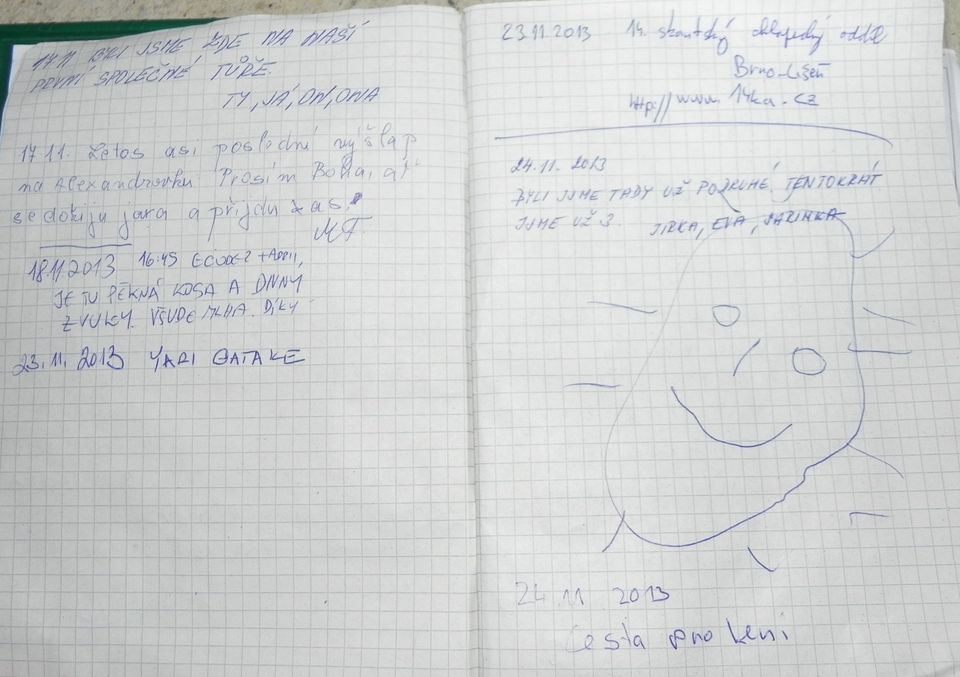 17.11 BYLI JSME ZDE NA NAŠÍ
PRVNÍ SPOLEČNÉ TŮŘE.
TY, JÁ, ON, ONA
17 11. Letos asi poslední výšlap
na Alexandrovku. Prosím Boha, ať
se dožiju jara a přijdu zas.
MF.
18.11.2013 16:45
JE TU PĚKNÁ KOSA A DIVNÝ
ZVUKY. VŠUDE MLHA. DÍKY
23.11.2013 YARI GATAKE
23.11.2013 14. skautský chlapecký oddíl
Brno-Líšeň
http://www.14ka.cz
24.11.2013
BYLI JSME TADY UŽ PODRUHÉ, TENTOKRÁT
JSME UŽ 3. JIRKA, EVA,
24.11 2013
Cesta pro